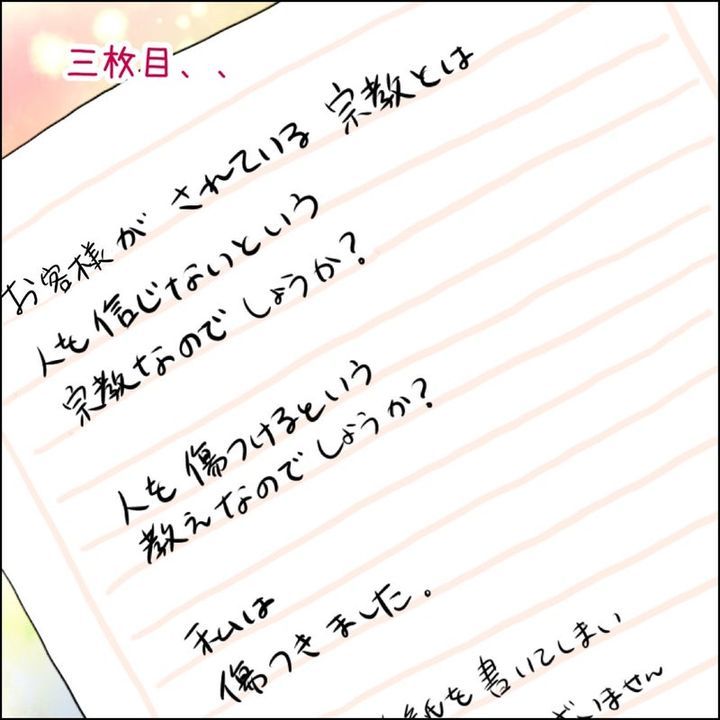 三枚目、、
お客様が されている 宗教とは
人を信じないという
宗教なのでしょうか?
人を傷つけるという
教えなのでしょうか?
私は
傷つきました。
紙を書いてしまい
いません